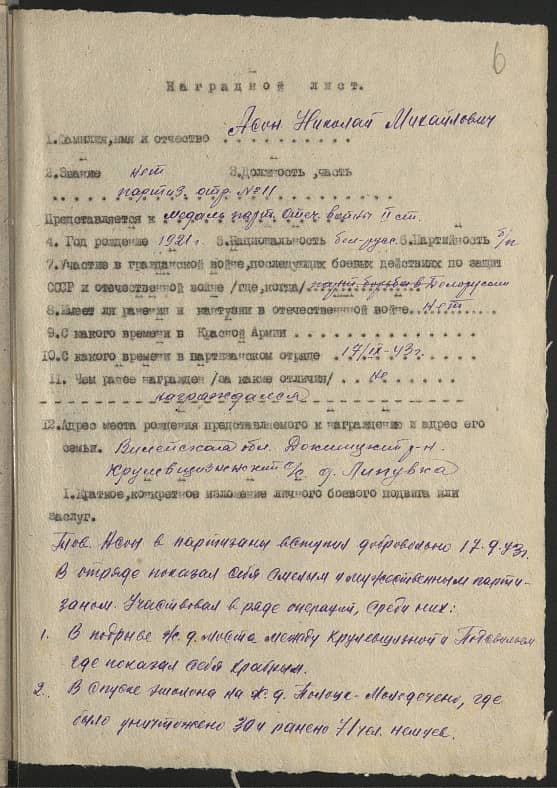 6
Наградной лист.
Асон Николай Михайлович
1.Фамилия,имя и отчество . . . . . . . . . .
2.Звание нет 3.Должность ,часть
партиз. отр. №11
Представляется к медали парт. Отеч. войны II ст.
4. Год рождение 1921 г. 5.Национальность бел-русс. 6.Партийность б/п
7.Участие в гражданской войне,последующих боевых действиях по защит
СССР и отечественной войне /где,когда/ в Белоруссии
8.Имеет ли ранения и контузии в отечественной войне. нет
9.С какого времени в Красной Армии . . . . . . . . . . .
10.С какого времени в партизанском отряде 17/IX-43 г.
11. Чем ранее награжден /за какие отличия/ . . не
награждался
12.Адрес места рождения представляемого к награждению и адрес его
семьи. Вилейская обл. Докшицкий р-н.
Крулевщизненский с/с д. Липувка
I.Краткое,конкретное изложение личного боевого подвига или
заслуг.
Тов. Асон в партизаны вступил добровольно 17.9.43г.
В отряде показал себя смелым и мужественным парти-
заном. Участвовал в ряде операций, среди них:
1. В подрыве ж.д. моста между Крулевщизной и
где показал себя храбрым.
2. В спуске эшелона на ж.д. Полоцк-Молодечено, где
было уничтожено 30 и ранено 71 чел. немцев.